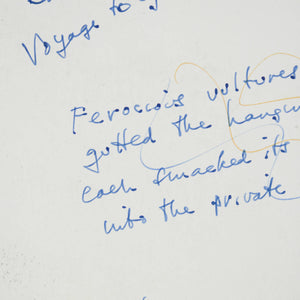 Voyage to
Ferocious vultures
gutted the
each smacked its
into the private